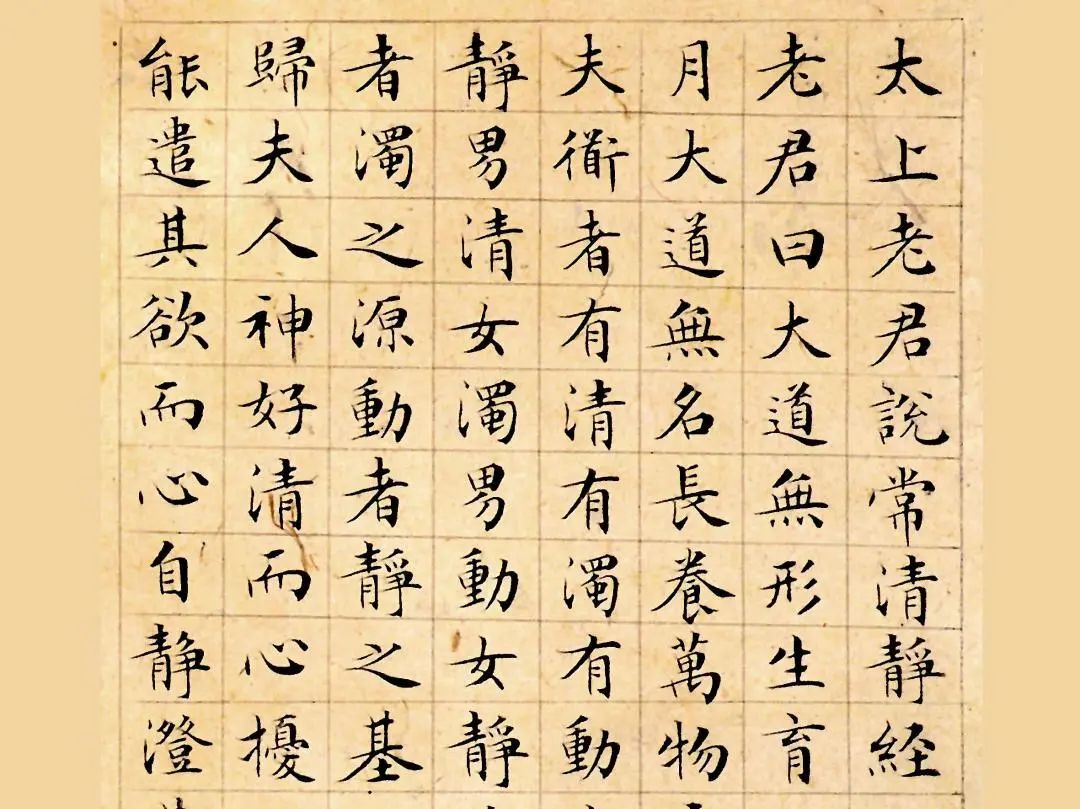 太上老君說常清靜経
老君曰大道無形生育
月大道無名長養萬物
夫衟者有清有濁有動
靜男清女濁男動女靜
者濁之源動者靜之基
歸夫人神好清而心擾
能遣其欲而心自静澄